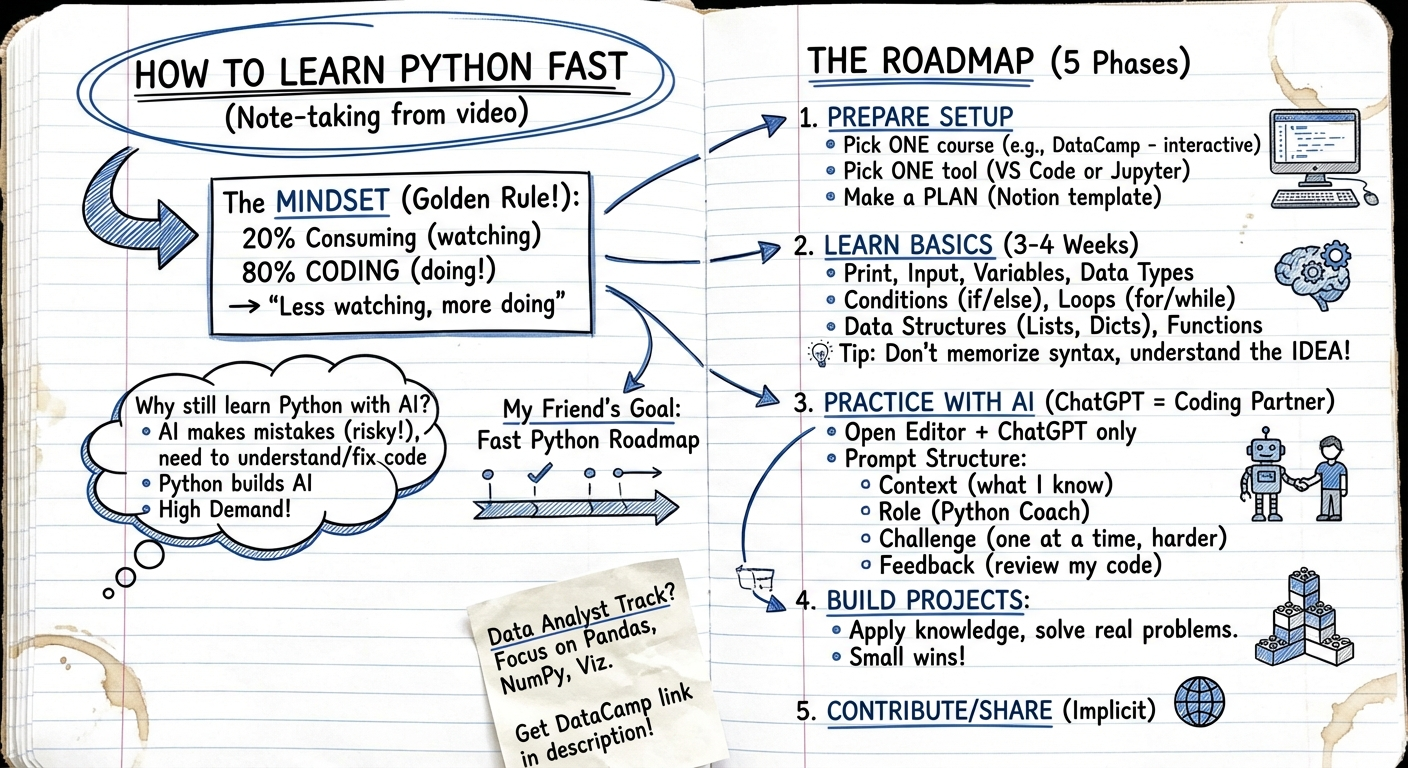 HOW TO LEARN PYTHON FAST
(Note-taking from video)
The MINDSET (Golden Rule!):
20% Consuming (watching)
80% CODING (doing!)
→ “Less watching, more doing”
Why still learn Python with AI?
• AI makes mistakes (risky!),
need to understand/fix code
• Python builds AI
• High Demand!
My Friend's Goal:
Fast Python Roadmap
Data Analyst Track?
Focus on Pandas,
NumPy, Viz.
Get DataCamp link
in description!
THE ROADMAP (5 Phases)
1. PREPARE SETUP
• Pick ONE course (e.g., DataCamp - interactive)
• Pick ONE tool (VS Code or Jupyter)
• Make a PLAN (Notion template)
2. LEARN BASICS (3-4 Weeks)
• Print, Input, Variables, Data Types
• Conditions (if/else), Loops (for/while)
• Data Structures (Lists, Dicts), Functions
Tip: Don't memorize syntax, understand the IDEA!
3. PRACTICE WITH AI (ChatGPT = Coding Partner)
• Open Editor + ChatGPT only
• Prompt Structure:
◦ Context (what I know)
◦ Role (Python Coach)
◦ Challenge (one at a time, harder)
◦ Feedback (review my code)
4. BUILD PROJECTS:
• Apply knowledge, solve real problems.
• Small wins!
5. CONTRIBUTE/SHARE (Implicit)